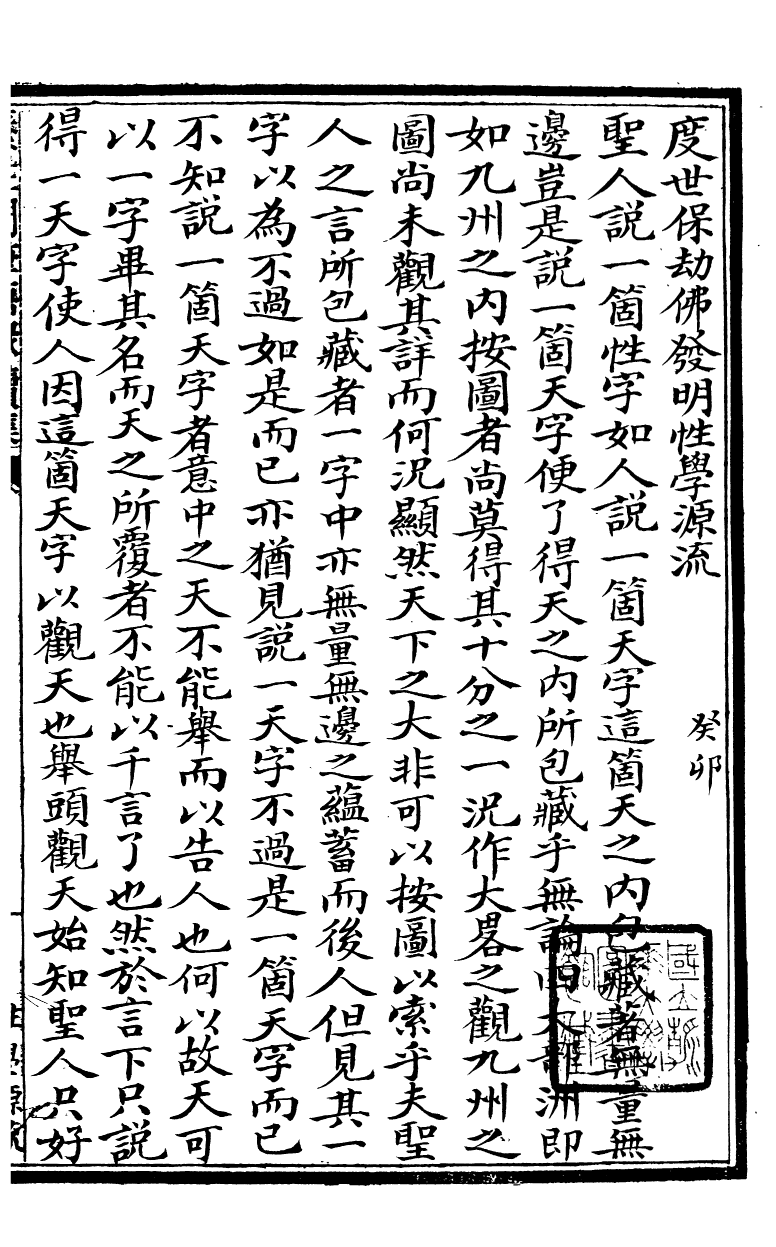 度世保劫佛發明性學源流 癸卯
聖人說一箇性字如人說一箇天字這箇天之内包藏著無量無
邊豈是說一箇天字便了得天之内所包藏乎無論四大部洲即
如九州之内按圖者尚莫得其十分之一況作大畧之觀九州之
圖尚未觀其詳而何況顯然天下之大非可以按圖以索乎夫聖
人之言所包藏者一字中亦無量無邊之蘊蓄而後人但見其一
字以為不過如是而已亦猶見說一天字不過是一箇天字而已
不知說一箇天字者意中之天不能舉而以告人也何以故天可
以一字畢其名而天之所覆者不能以千言了也然於言下只說
得一天字使人因這箇天字以觀天也舉頭觀天始知聖人只好